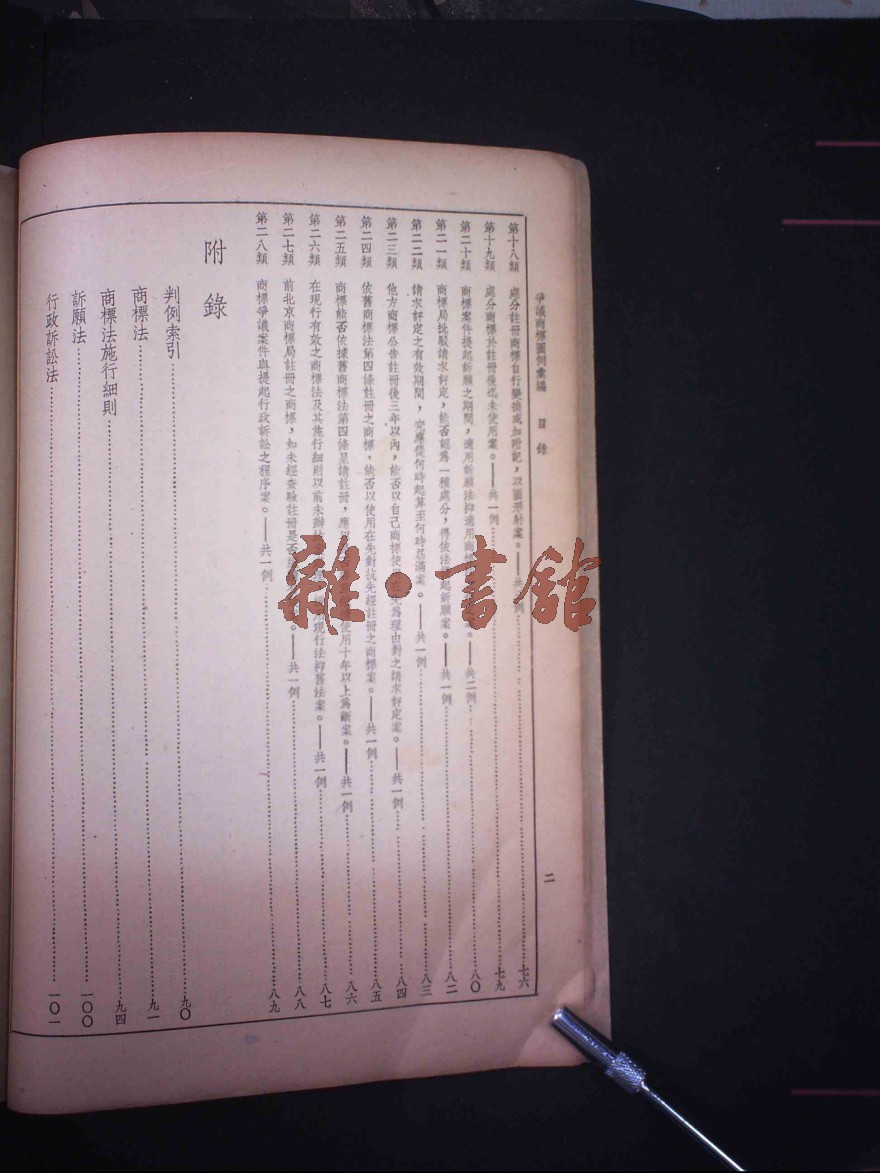 爭議商標圖例彙編　目錄　二
第十八類　處分註冊商標自行變換或加附記，以圖影射案。——共一例……七六
第十九類　處分商標於註冊後迄未使用案。——共一例……七九
第二十類　商標案件提起訴願之期間，適用訴願法抑適用商標案。——共二例……八〇
第二一類　商標局批駁請求評定，能否認爲一種處分，得依法起訴願案。——共一例……八二
第二二類　請求評定之有效期間，究應從何時起算至何時屆滿案。——共一例……八三
第二三類　他方商標公告註冊後三年以內，能否以自己商標使用在先爲理由對之請求評定案。——共一例……八四
第二四類　依舊商標法第四條註冊之商標，能否以使用在先對抗先經註冊之商標案。——共一例……八五
第二五類　商標能否依據舊商標法第四條呈請註冊，應以使用十年以上爲斷案。——共一例……八六
第二六類　在現行有效之商標法及其施行細則以前未辦現行法抑舊法案。——共一例……八七
第二七類　前北京商標局註冊之商標，如未經查驗註冊是否。——共一例……八八
第二八類　商標爭議案件與提起行政訴訟之程序案。——共一例……八九
附錄
判例索引……九〇
商標法……九一
商標法施行細則……九四
訴願法……一〇〇
行政訴訟法……一〇一
雜·書館